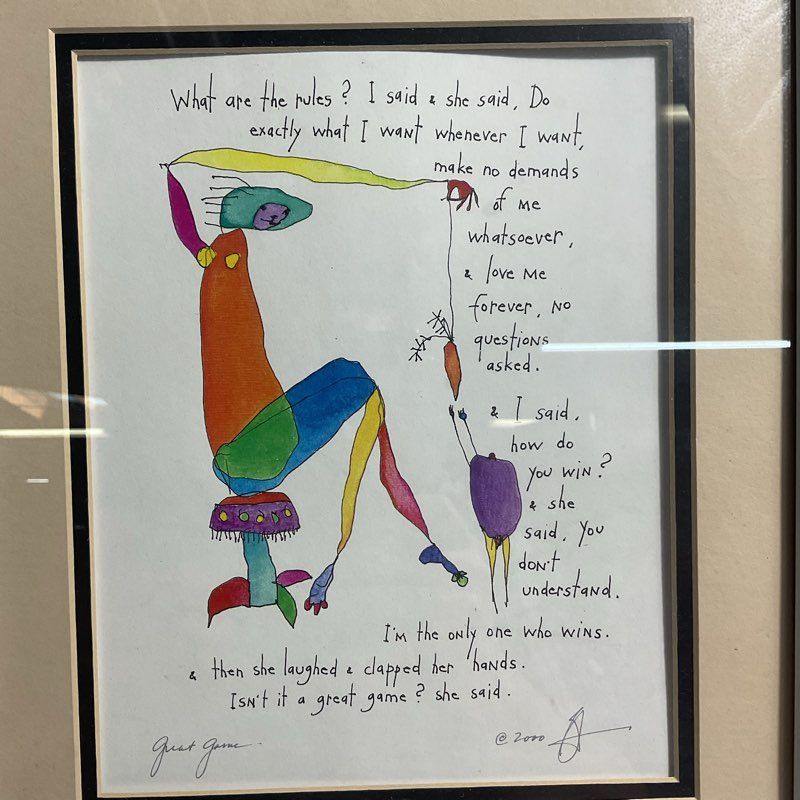 What are the rules? I said & she said, Do
exactly what I want whenever I want,
make no demands
of me
whatsoever,
& love me
forever, no
questions
asked.
& I said,
how do
you win?
& she
said, You
don't
understand.
I'm the only one who wins.
& then she laughed & clapped her hands.
Isn't it a great game? she said.
Great Game.
© 2000